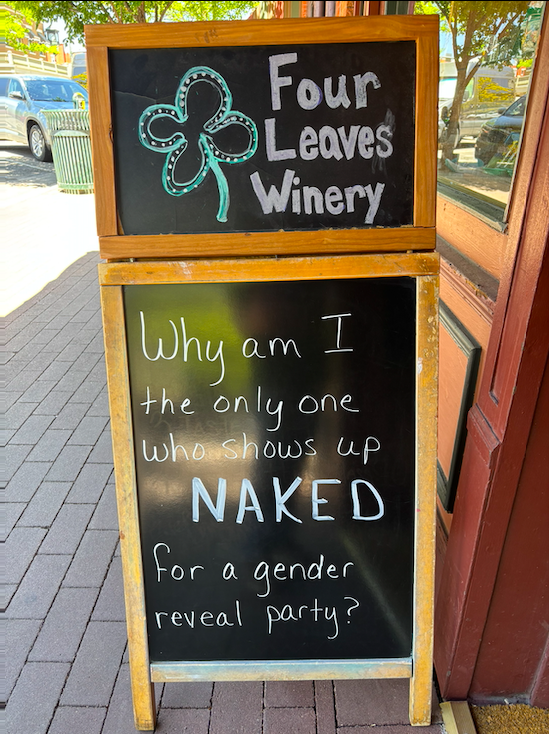 Four
Leaves
Winery
Why am I
the only one
who shows up
NAKED
for a gender
reveal party?